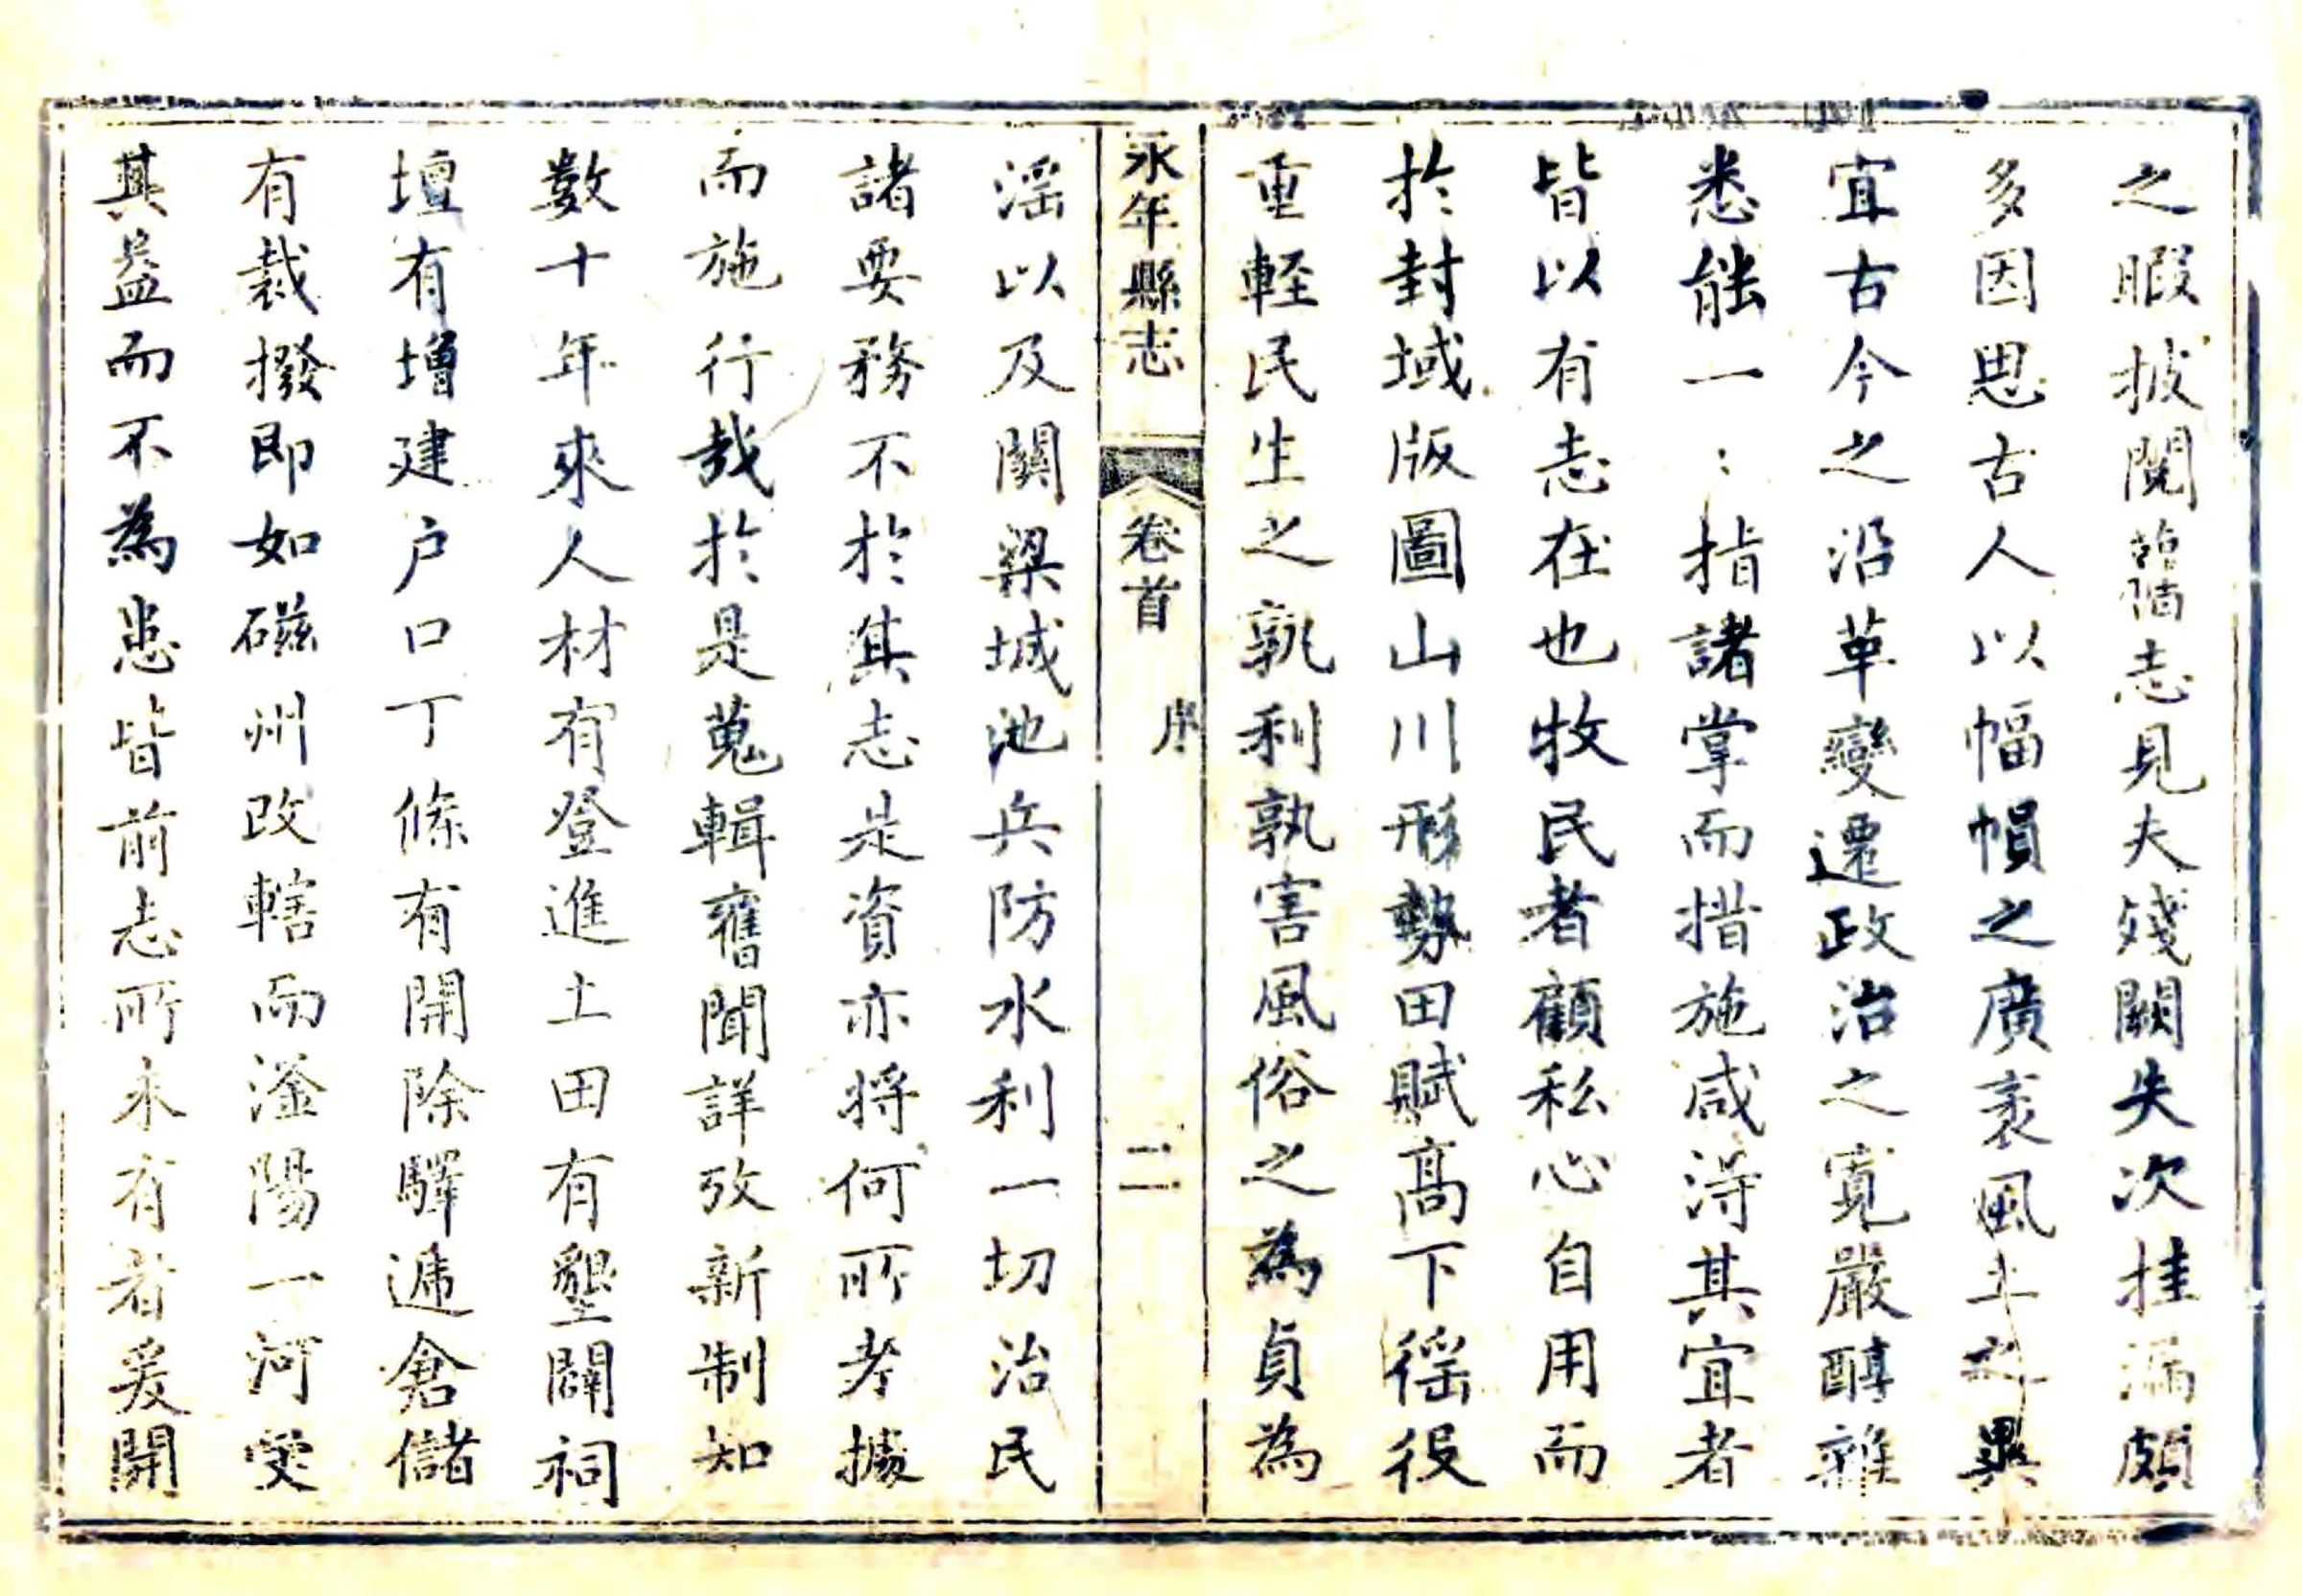 之暇披閱舊志見夫殘闕失次挂漏頗
多因思古人以幅幀之廣袤風土之異
宜古今之沿革變遷政治之寬嚴醇雜
悉能一〻指諸掌而措施咸得其宜者
皆以有志在也牧民者顧私心自用而
於封域版圖山川形勢田賦高下徭役
重輕民生之孰利孰害風俗之為貞為
永年縣志 卷首 序 二
滛以及關梁城池兵防水利一切治民
諸要務不於其志是資亦将何所考據
而施行哉於是蒐輯舊聞詳攷新制知
數十年來人材有登進土田有墾闢祠
壇有增建户口丁條有開除驛遞倉儲
有裁撥即如磁州改轄而滏陽一河受
其益而不為患皆前志所未有者爰開